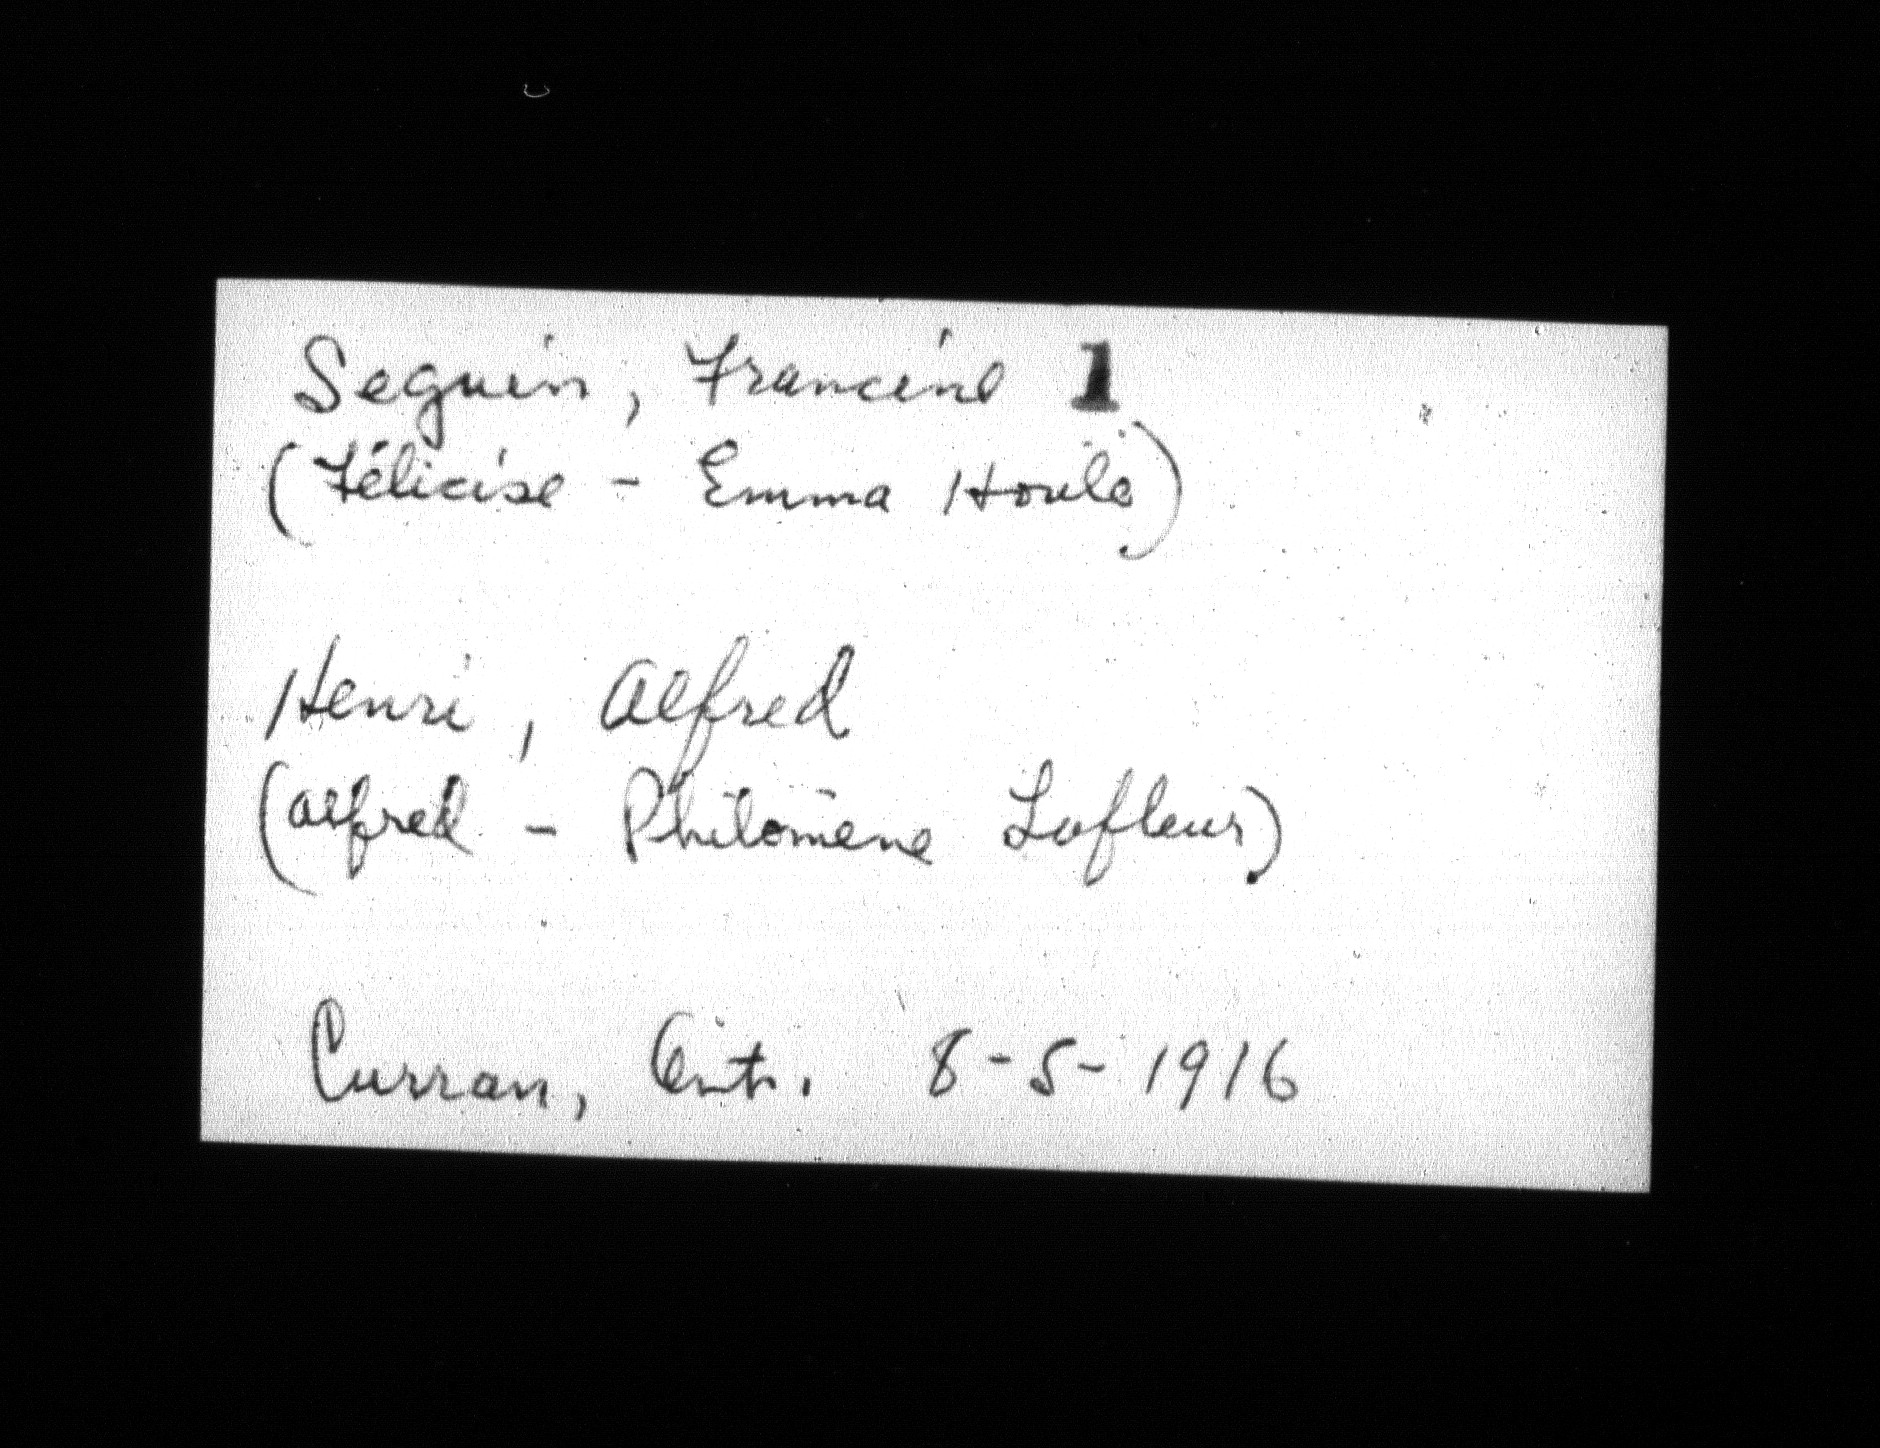 Seguin, Francine 1
(Félicise - Emma Houle)
Henri, Alfred
(Alfred - Philomène Lafleur)
Curran, Ont. 8-5-1916